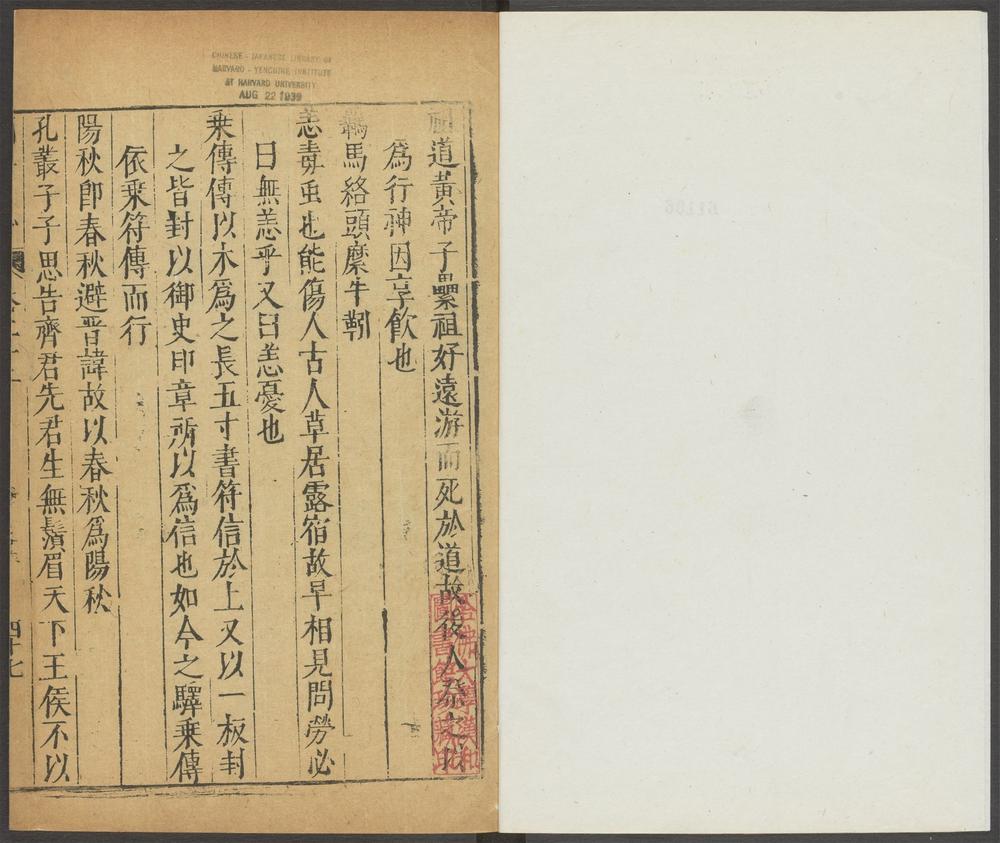 CHINESE - JAPANESE LIBRARY OF
HARVARD - YENCHING INSTITUTE
AT HARVARD UNIVERSITY
AUG 22 1939
祖道黃帝子纍祖好遠游而死於道故後人祭之以
爲行神因享飮也
羈馬絡頭縻牛靷
恙毒虫也能傷人古人草居露宿故早相見問勞必
曰無恙乎又曰恙憂也
乗傳傳以木爲之長五寸書符信於上又以一板封
之皆封以御史印章所以爲信也如今之驛乗傳
依乗符傳而行
陽秋卽春秋避晉諱故以春秋爲陽秋
孔叢子子思告齊君先君生無鬚眉天下王侯不以
四十七
哈佛大學漢和
圖書館珍藏印